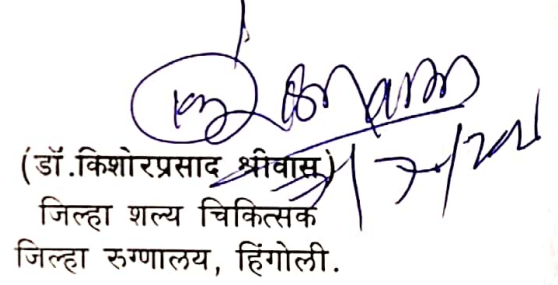 (डॉ.किशोरप्रसाद श्रीवास)
जिल्हा शल्य चिकित्सक
जिल्हा रुग्णालय, हिंगोली.